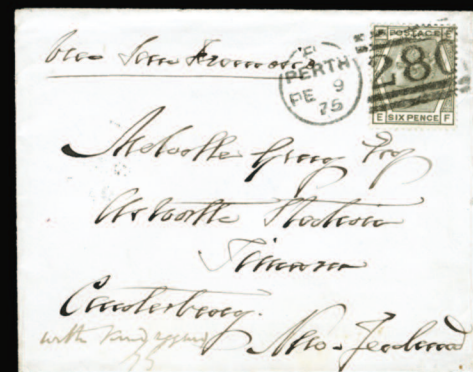 via San Francisco
PERTH
FE 9
75
POSTAGE
280
E F
SIX PENCE
Melville Gray Esq
Station
Timaru
Canterbury.
New Zealand